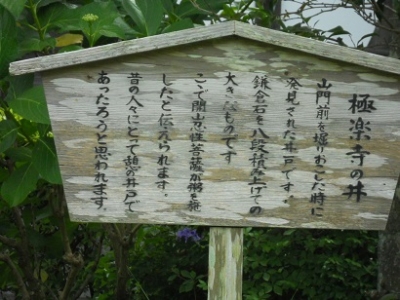 極楽寺の井
山門前を掘りおこした時に
発見された井戸です。
鎌倉石を八段積み上げての
大きなものです
ここで開山忍性菩薩が粥を施
したと伝えられます。
昔の人々にとって憩の井戸で
あったろうと思われます。